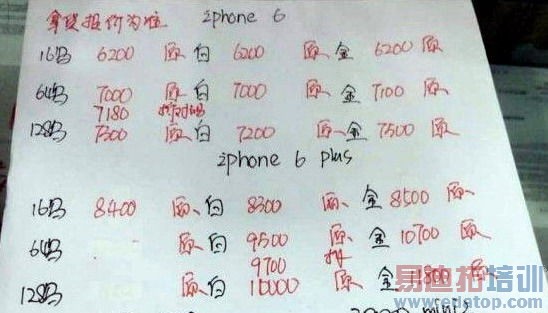 拿货报价为准 iphone 6
16鸟 6200 原 白 6200 原 金 6200 原
64鸟 7000 原 白 7000 原 金 7100 原
7180
128鸟 7300 原 白 7200 原 金 7500 原
iphone 6 plus
16鸟 8400 原、白 8300 原、金 8500 原、
64鸟 原、白 9500 原、金 10700 原、
9700
128鸟 原、白 10000 原、金 11800 原、
易迪拓培训
www.edatop.com